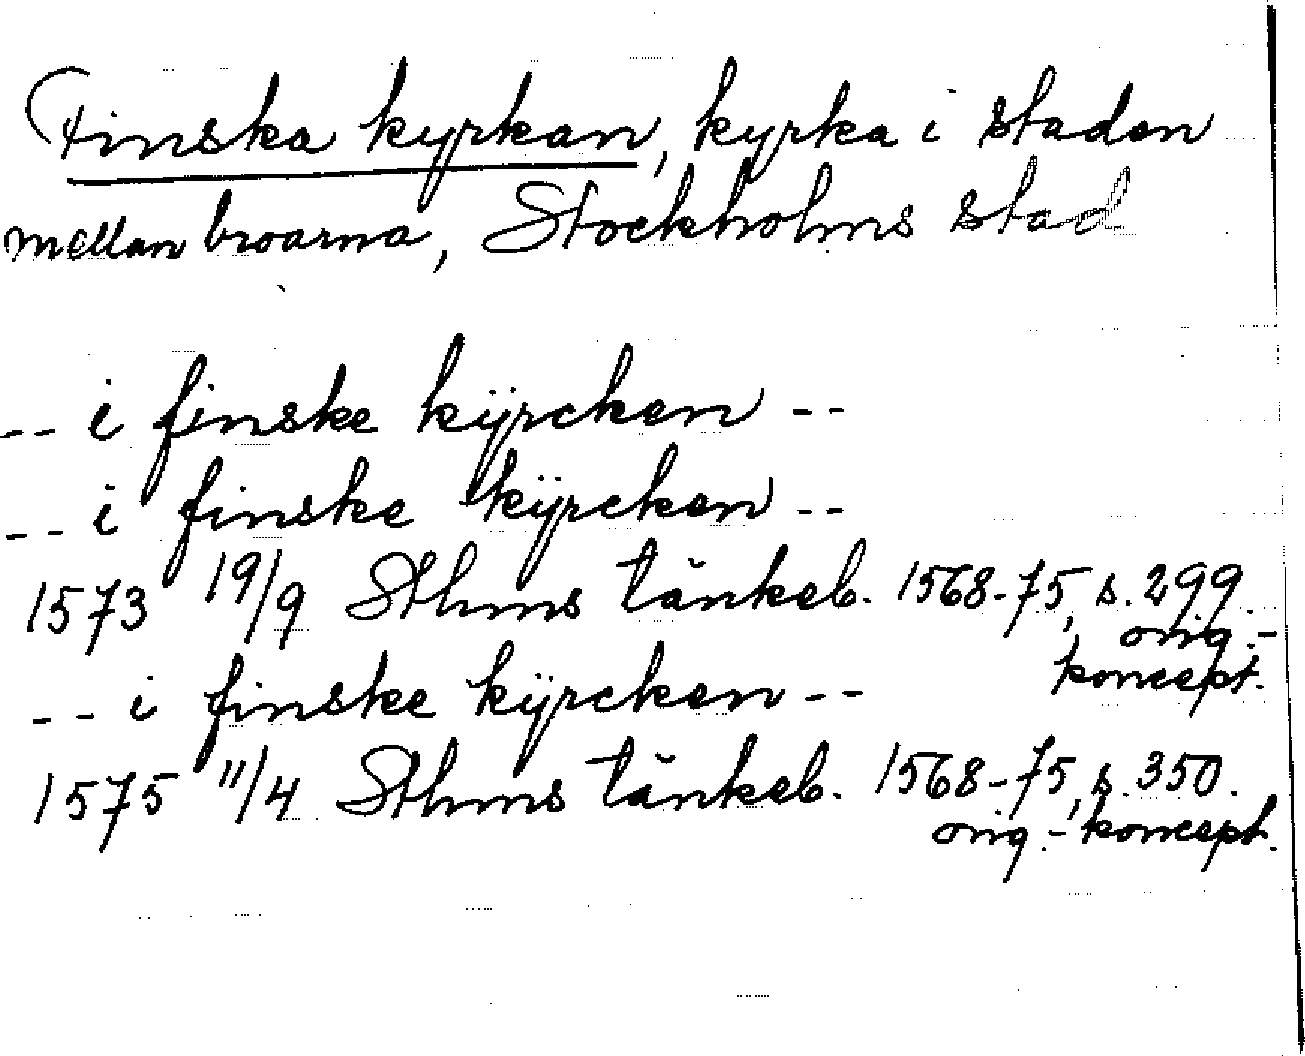 Finska kyrkan, kyrka i staden
mellan broarna, Stockholms stad
-- i finske kÿrcken --
-- i finske kÿrcken --
1573 19/9 Sthms tänkeb. 1568-75, s. 299.
orig.-
koncept.
-- i finske kÿrcken --
1575 11/4 Sthms tänkeb. 1568-75, s. 350.
orig.-koncept.